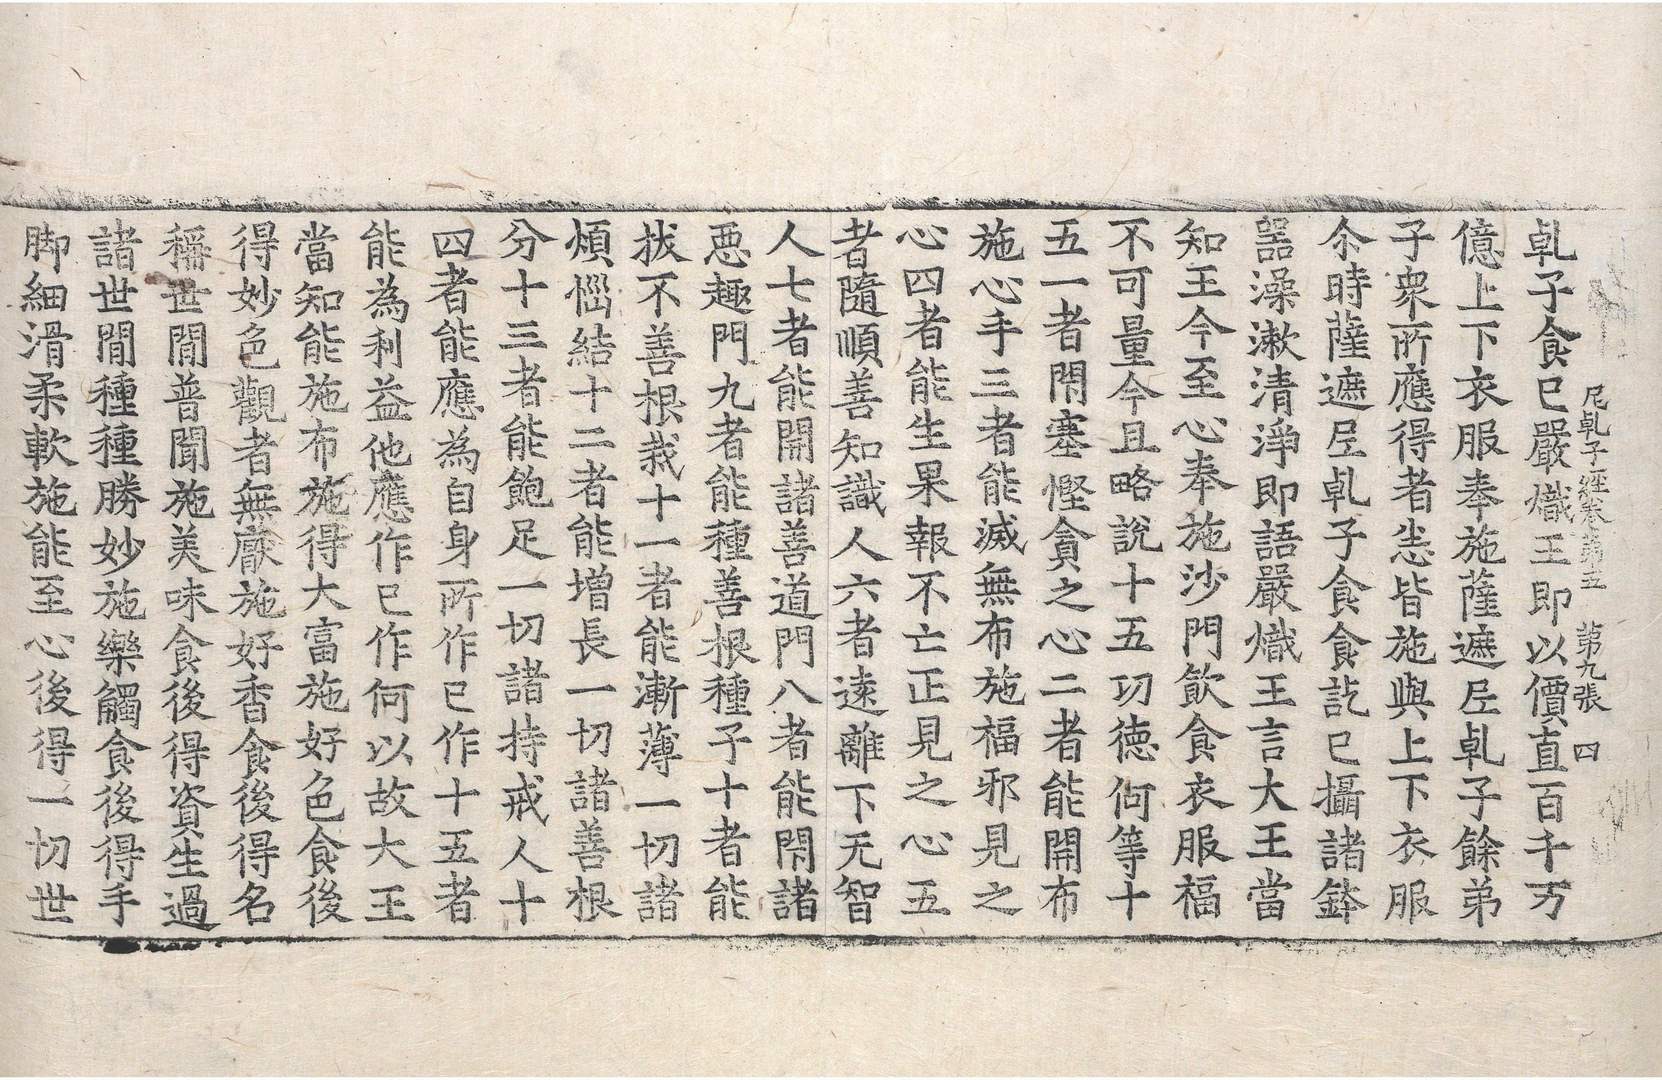 乹子食已嚴熾王即以價直百千万
尼乹子經卷第五　第九張　四
億上下衣服奉施薩遮𡰱乹子餘弟
子衆所應得者恙皆施與上下衣服
尒時薩遮𡰱乹子食食訖已攝諸鉢
器澡漱清淨即語嚴熾王言大王當
知王今至心奉施沙門飲食衣服福
不可量今且略說十五㓛徳何等十
五一者閇塞慳貪之心二者能開布
施心手三者能滅無布施福邪見之
心四者能生果報不亡正見之心五
者隨順善知識人六者遠離下无智
人七者能開諸善道門八者能閇諸
悪趣門九者能種善根種子十者能
拔不善根栽十一者能漸薄一切諸
煩惱結十二者能増長一切諸善根
分十三者能飽足一切諸持戒人十
四者能應為自身所作已作十五者
能為利益他應作已作何以故大王
當知能施布施得大富施好色食後
得妙色觀者無厭施好香食後得名
稱世間普聞施美味食後得資生過
諸世間種種勝妙施樂觸食後得手
脚細滑柔軟施能至心後得一切世